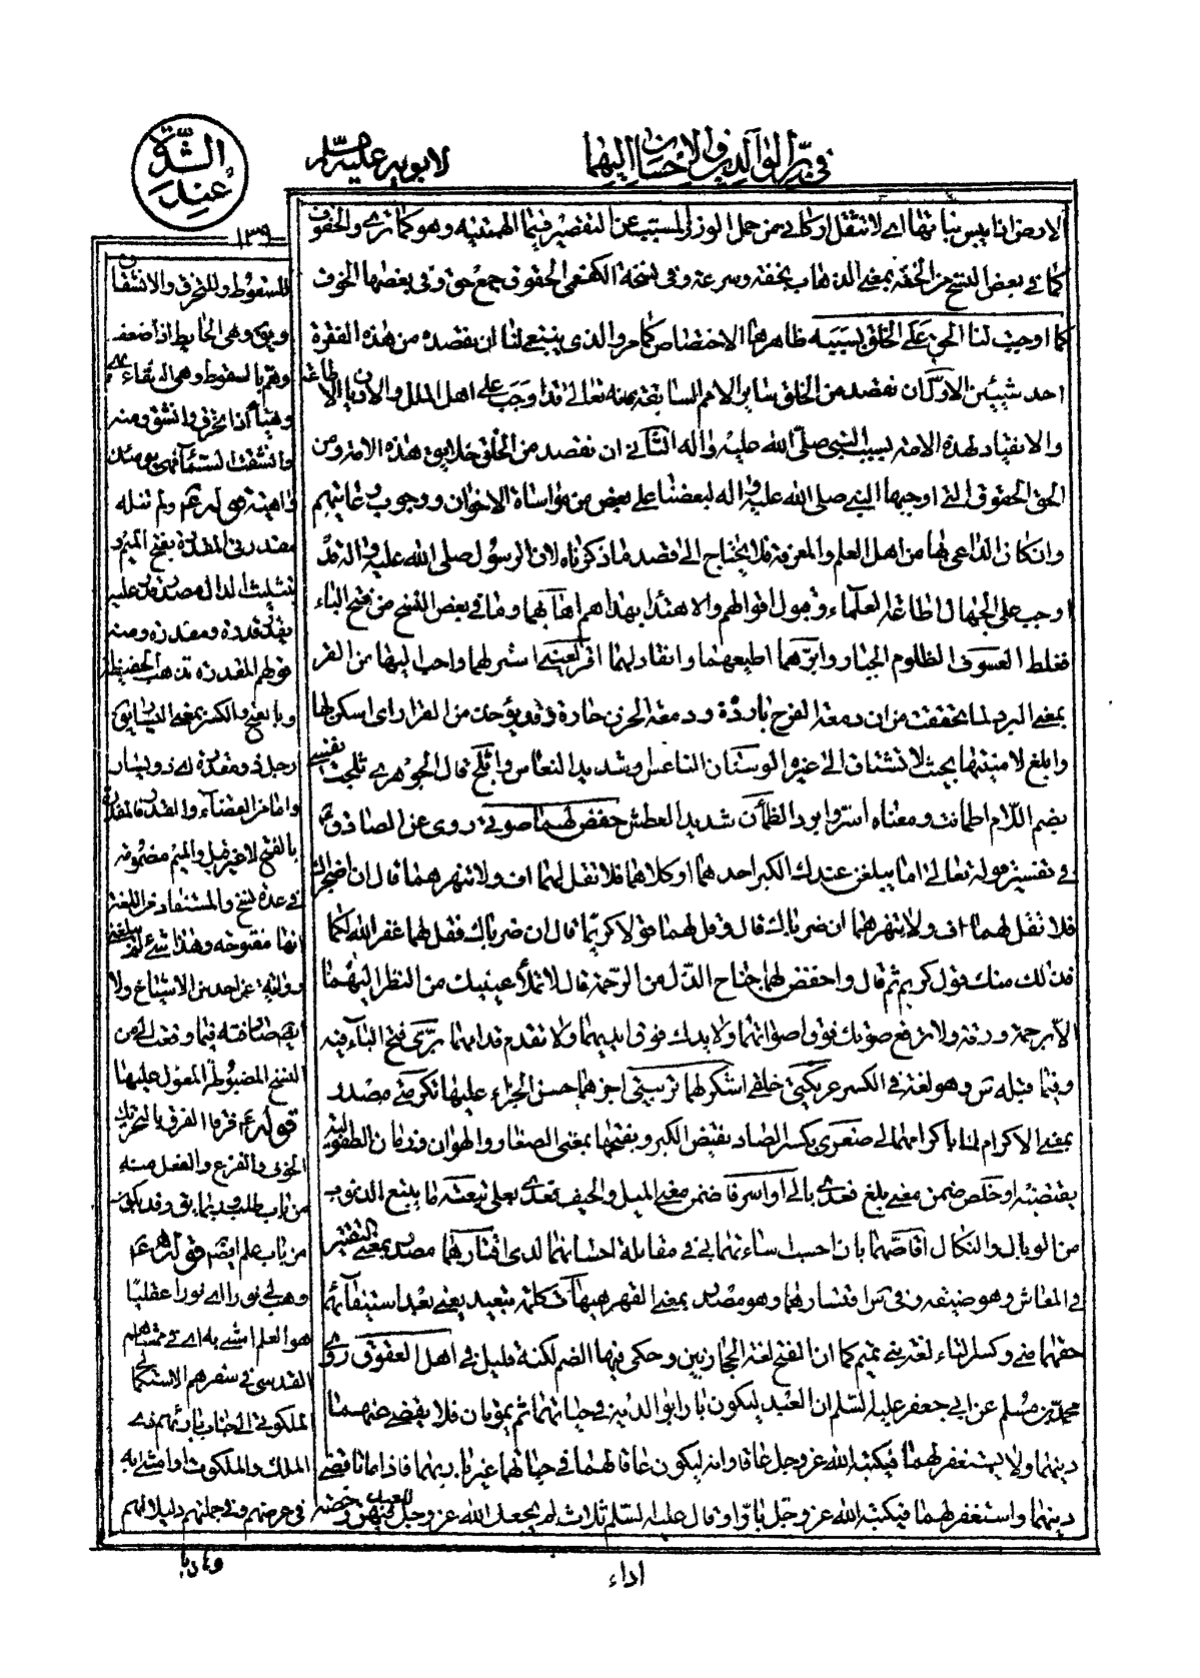 في بر الوالدين والاحسان اليهما
لابويه عليه السلم
عند الشدة
١٣٩
الارض اذا يبس نباتها اى لا تثقل اركانى من حمل الوزر المسبب عن التقصير فيما الهمتنيه وهو كما ترى والخفوف
كما فى بعض النسخ من الخفة بمعنى الذهاب بخفة وسرعة وفى نسخة الكفعمى الحقوق جمع حق وفى بعضها الخوف
كما اوجبت لنا الحق على الخلق بسببه ظاهرها الاختصاص كما مر والذى ينبغى لنا ان نقصده من هذه الفقرة
احد شيئين الاول ان نقصد من الخلق ساير الامم السابقة بمعنى انه تعالى قد اوجب على اهل الملل والاديان الاطاعة
والانقياد لهذه الامة بسبب النبى صلى الله عليه واله الثانى ان نقصد من الخلق خلايق هذه الامة ومن
الحق الحقوق التى اوجبها النبى صلى الله عليه واله لبعضنا على بعض من مواساة الاخوان ووجوب رعايتهم
وان كان الداعى بها من اهل العلم والمعرفة فلا يحتاج الى قصد ما ذكرناه لان الرسول صلى الله عليه واله قد
اوجب على الجهال اطاعة العلماء وقبول اقوالهم والاهتداء بهداهم اهابهما وما فى بعض النسخ من فتح الباء
فغلط العسوف الظلوم الجبار وابرهما اطيعهما وانقاد لهما اقر لعينى اسر لهما واحب اليها من القر
بمعنى البرد لما تحققت من ان دمعة الفرح باردة ودمعة الحزن حارة وقد يؤخذ من القرار اى اسكن لها
وابلغ لامنيتها بحيث لا تشتاق الى غيره الوسنان الناعس وشديد النعاس واثلج قال الجوهرى ثلجت نفسى
بضم اللام اطمانت ومعناه اسر وابرد الظمأن شديد العطش خفض لهما صوتى روى عن الصادق ع
فى تفسير قوله تعالى اما يبلغن عندك الكبر احدهما او كلاهما فلا تقل لهما اف ولا تنهرهما قال ان اضجراك
فلا تقل لهما اف ولا تنهرهما ان ضرباك قال وقل لهما قولا كريما قال ان ضرباك فقل لهما غفر الله لكما
فذلك منك قول كريم ثم قال واخفض لهما جناح الذل من الرحمة قال لا تملأ عينيك من النظر اليهما
الا برحمة ورقة ولا ترفع صوتك فوق اصواتهما ولا يدك فوق ايديهما ولا تقدم قدامهما برى فتح الباء فيه
وفيما قبله س وهو لغة فى الكسر عريكتى خلقى اشكر لهما تربيتى اجزهما حسن الجزاء عليها تكرمتى مصدر
بمعنى الاكرام اى باكرامهما لى صغرى بكسر الصاد نقيض الكبر وبفتحها بمعنى الصغار والهوان وزمان الطفولية
يقتضيه او خلص ضمن معنى بلغ فعدى بالى او اسرفا ضمن معنى الميل والحيف فعدى بعلى تبعته ما يتبع الذنوب
من الوبال والنكال اقاصهما بان احسب اساءتهما بى فى مقابلة احسانهما لدى اقتارهما مصدر بمعنى التقتير
فى المعاش وهو ضيقه وفى س اقتسارهما وهو مصدر بمعنى القهر هيهات كلمة تبعيد يعنى بعد استيفائهم
حقهما منى وكسر التاء لغة بنى تميم كما ان الفتح لغة الحجازيين وحكى فيها الضم لكنه قليل فى اهل العقوق روى
محمد بن مسلم عن ابى جعفر عليه السلم ان العبد ليكون بارا بوالديه فى حياتهما ثم يموتان فلا يقضى عنهما
دينهما ولا يستغفر لهما فيكتبه الله عز وجل عاقا وانه ليكون عاقا لهما فى حياتهما غير بار بهما فاذا ماتا قضى
دينهما واستغفر لهما فيكتبه الله عز وجل بارا وقال عليه السلم ثلاث لم يجعل الله عز وجل للعبد فيهن رخصة
اداء
للسقوط وللتخرق والانشقاق
ويق وهى الحايط اذا ضعف
وهم بالسقوط وهى السقاء
وهيا اذا تخرق وانشق ومنه
وانشقت السماء فهى يومئذ
واهية قوله ع ولم تنله
مقدرتى المقدرة بفتح الميم و
بتثليث الدال مصدر قدر عليه
يقدر قدرة ومقدرة ومنه
قولهم المقدرة تذهب الحفيظة
وبالفتح والكسر بمعنى اليسار يق
رجل ذو مقدرة اى ذو يسار
واما من القضاء والقدر فالمقدرة
بالفتح لا غير قيل والميم مضمومة
فى عدة نسخ والمستفاد من اللغة
انها مفتوحة وهذا شئ لم يبلغنى
روايته عن احد من الاشياخ ولا
صادفته فيما وقعت لى من
النسخ المضبوطة المعول عليها
قوله ع فرقا الفرق بالتحريك
الخوف والفزع والفعل منه
من باب طلب وربما يق وقد يكون
من باب علم ايضا قوله ع
وهب لى نورا اى نورا عقليا
هو العلم امشى به اى فى
القدسى فى سفرهم الاستكمالى
الملكوتى الى جناب بارئهم فى
الملك والملكوت او امشى به
فى عرضهم وفى جملتهم دليلا لهم